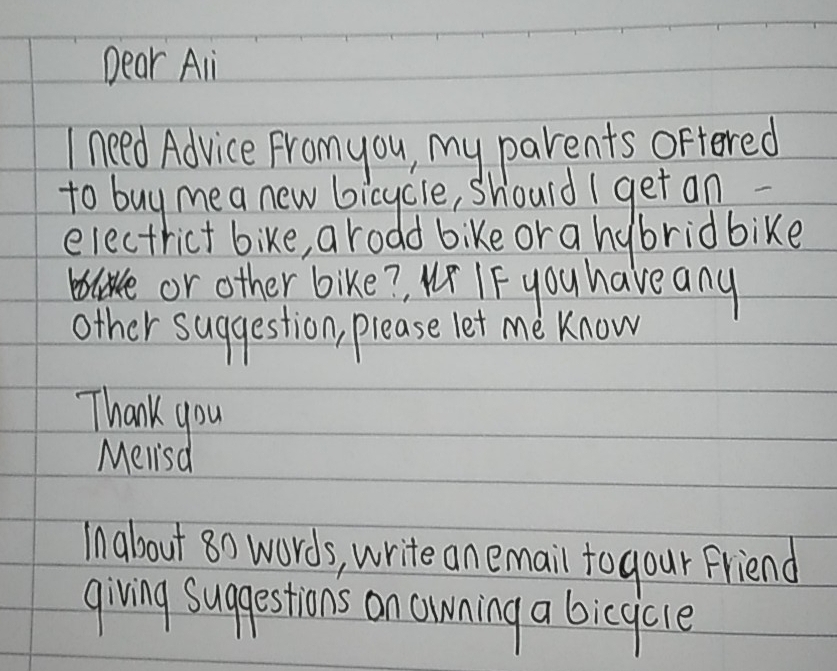 Dear Ali
I need Advice From you, my parents offered
to buy me a new bicycle, should I get an -
electrict bike, a road bike or a hybrid bike
or other bike?, IF you have any
other suggestion, please let me know
Thank you
Melisa
In about 80 words, write an email to your Friend
giving suggestions on owning a bicycle